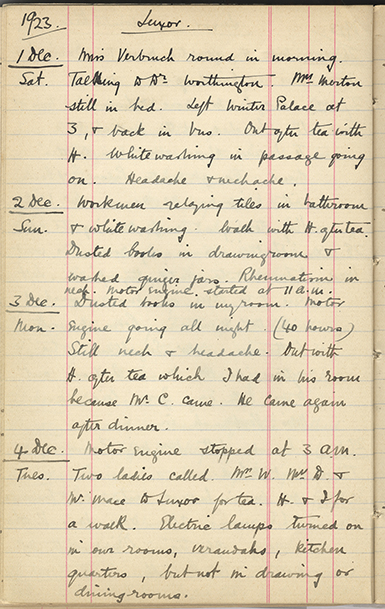 1923. Luxor.
1 Dec. Miss Verbruch round in morning.
Sat. Talking to Dr Worthington. Mrs Morton
still in bed. Left Winter Palace at
3, & back in bus. Out after tea with
H. Whitewashing in passage going
on. Headache & neckache.
2 Dec. Workmen relaying tiles in bathroom
Sun. & whitewashing. Walk with H. after tea.
Dusted books in drawingroom &
washed ginger jars. Rheumatism in
neck. Motor Engine started at 11 a.m.
3 Dec. Dusted books in my room. Motor
Mon. Engine going all night. (40 hours)
Still neck & headache. Out with
H. after tea which I had in his room
because Mr. C. came. He came again
after dinner.
4 Dec. Motor Engine stopped at 3 A.M.
Tues. Two ladies called. Mr. W. Mr D. &
Mr. Mace to Luxor for tea. H. & I for
a walk. Electric lamps turned on
in our rooms, verandahs, kitchen
quarters, but not in drawing or
dining rooms.